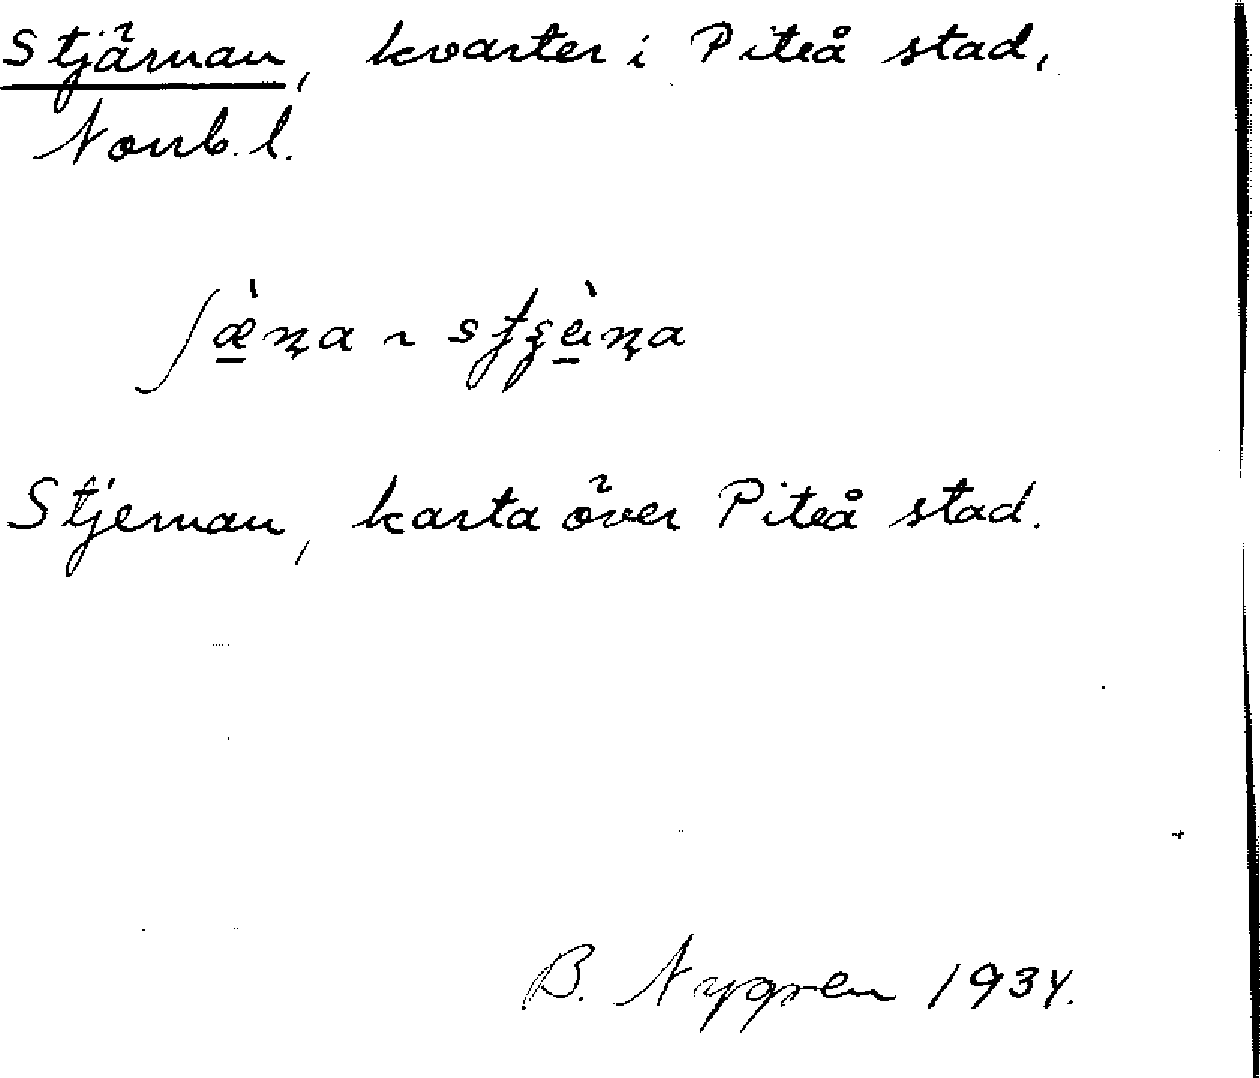 Stjärnan, kvarter i Piteå stad,
Norrb. l.
Stjernan, karta över Piteå stad.
B. Nygren 1934.